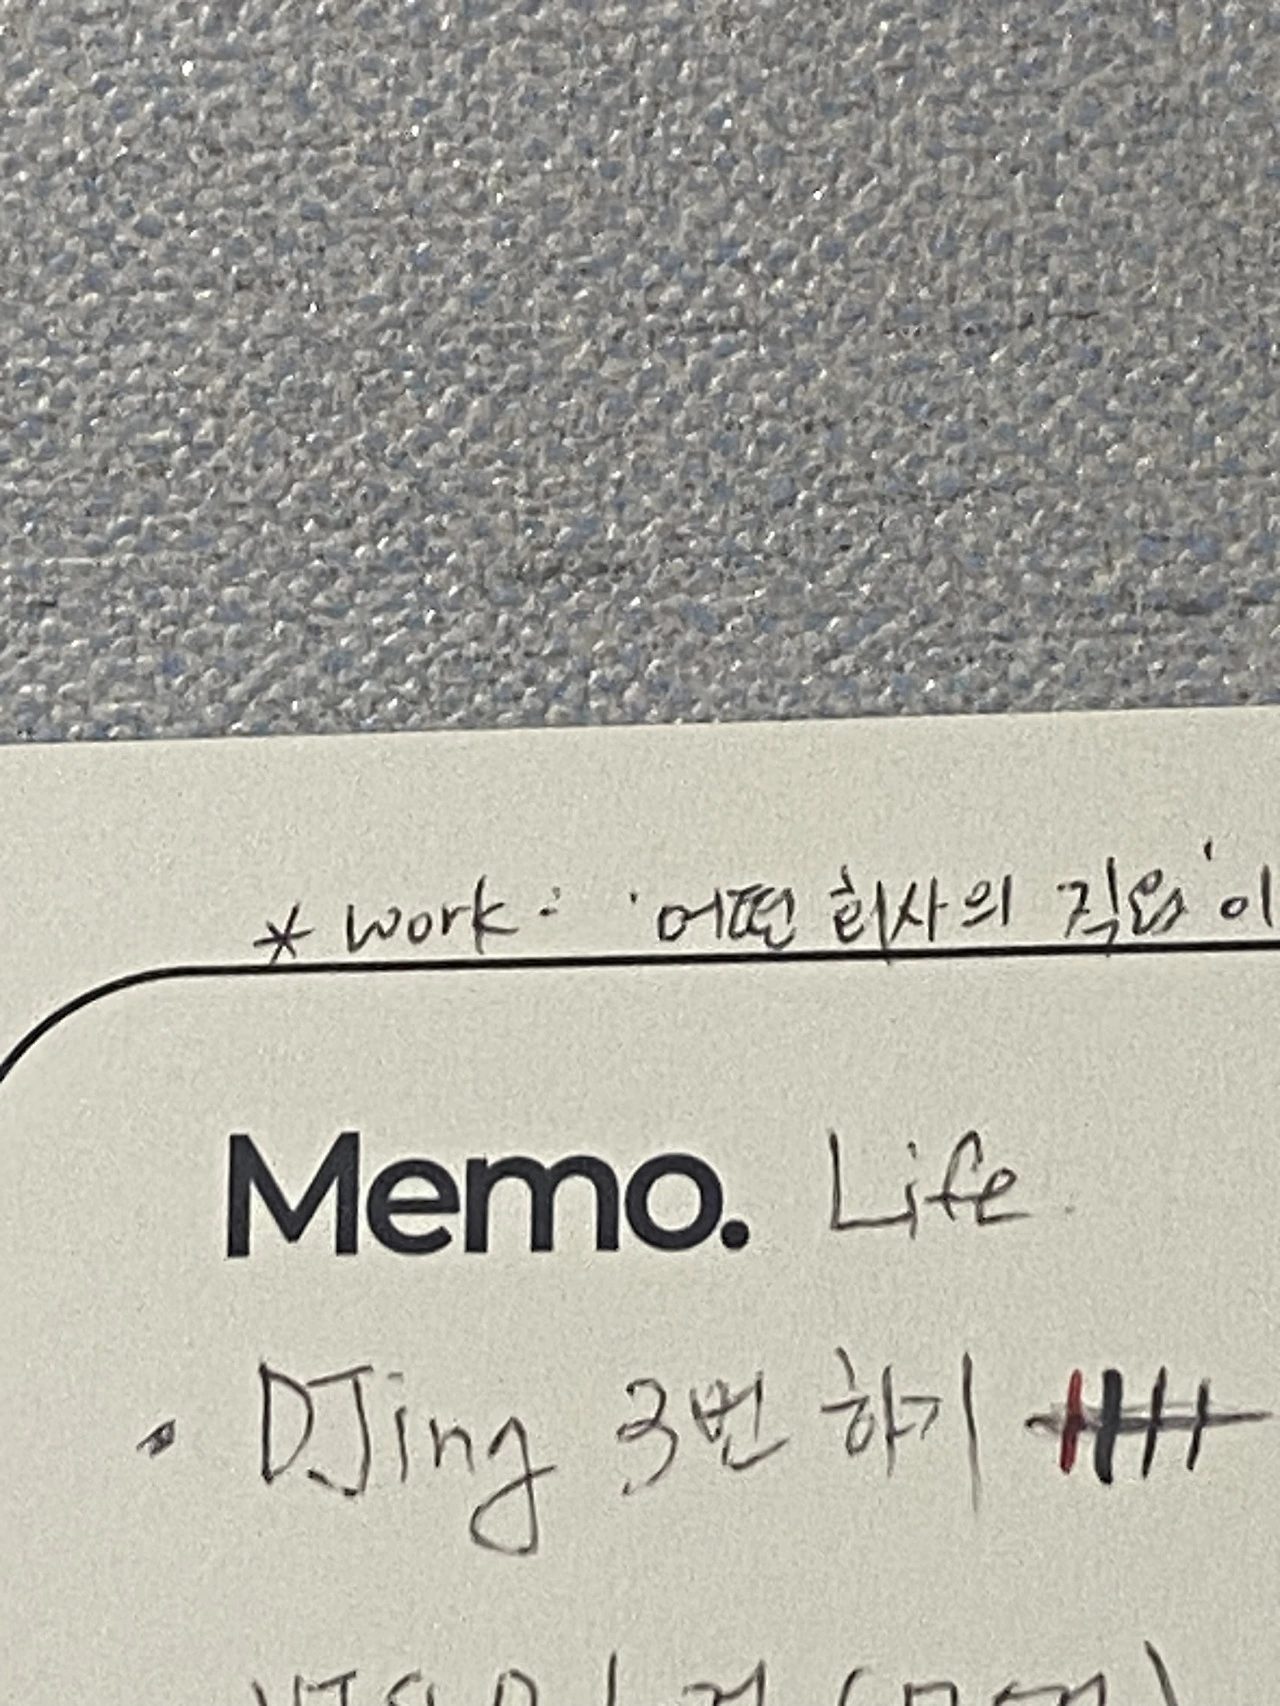 * work : '어떤 회사의 직원' 이
Memo. Life
• DJing 3번 하기